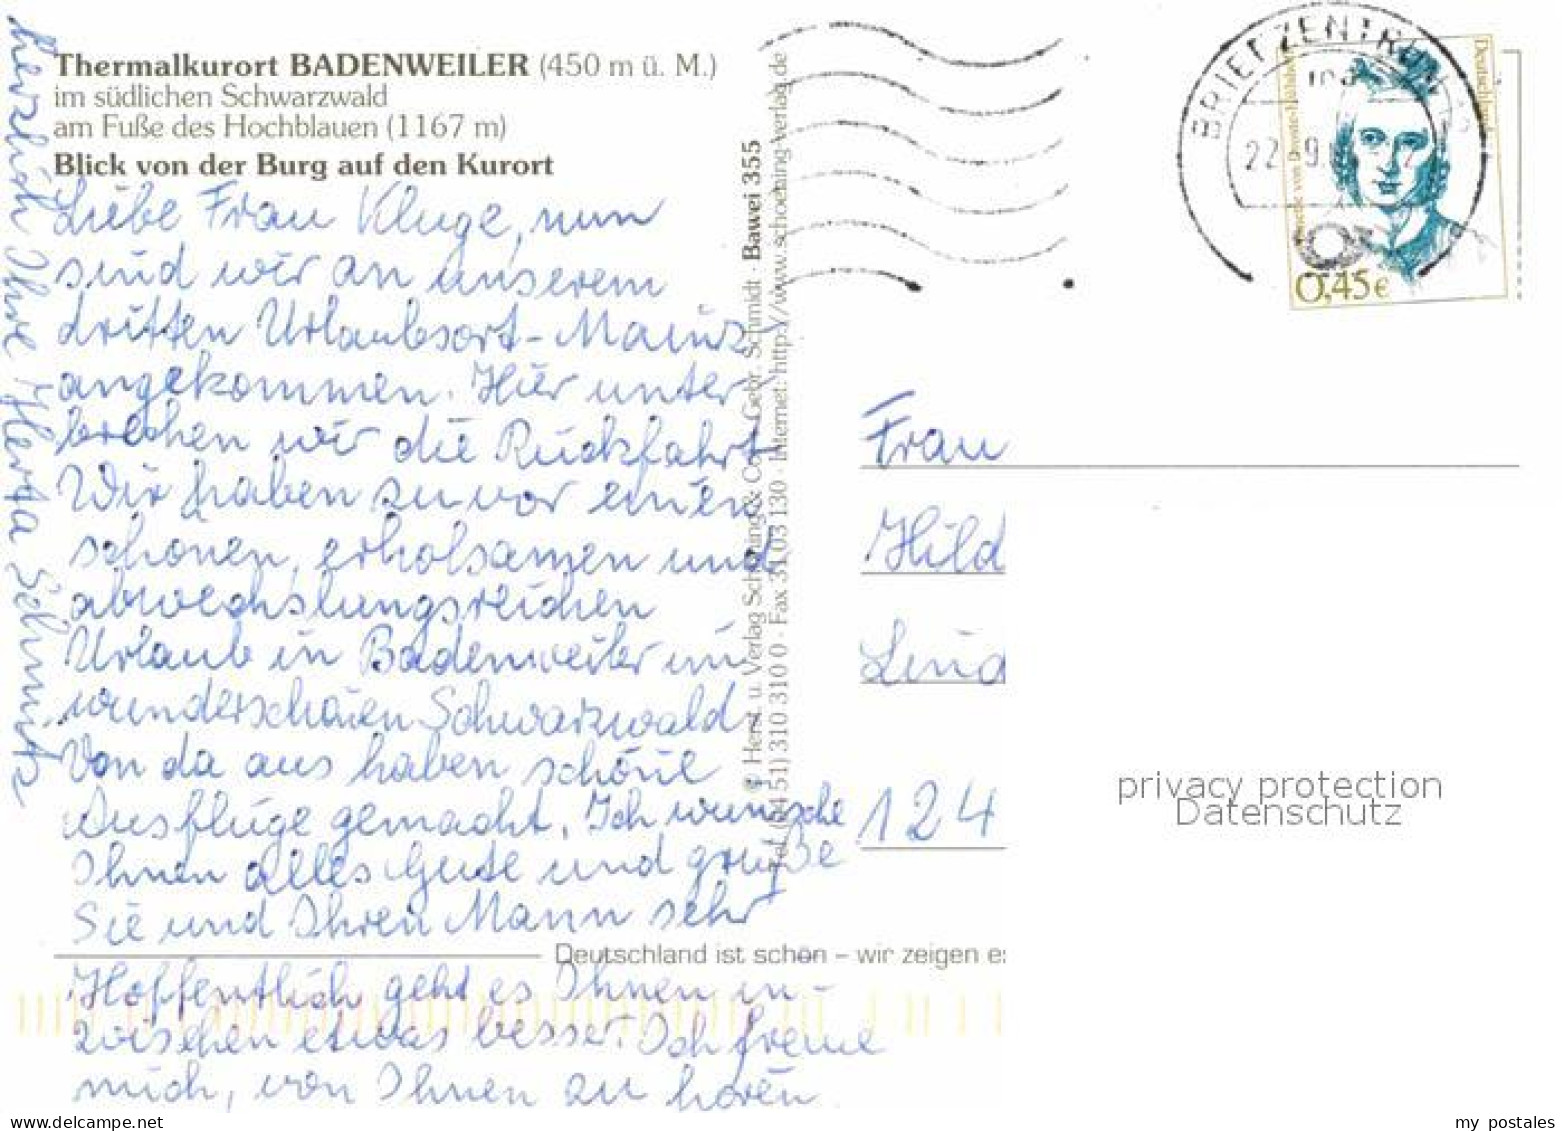 Thermalkurort BADENWEILER (450 m ü. M.)
im südlichen Schwarzwald
am Fuße des Hochblauen (1167 m)
Blick von der Burg auf den Kurort
Liebe Frau Kluge, nun
sind wir an unserem
dritten Urlaubsort - Mainz
angekommen. Hier unter
brechen wir die Rückfahrt
Wir haben zuvor einen
schönen, erholsamen und
abwechslungsreichen
Urlaub in Badenweiler im
wunderschönen Schwarzwald
Von da aus haben schöne
Ausflüge gemacht. Ich wünsche
Ihnen alles Gute und grüße
Sie und Ihren Mann sehr
herzlich Ihre Herta Schmitz
Hoffentlich geht es Ihnen in-
zwischen etwas besser. Ich freue
mich, von Ihnen zu hören
© Herst. u. Verlag Schöning & Co + Gebr. Schmidt · Bawei 355
Tel. (0451) 310 310 0 · Fax 31 03 130 · Internet: http://www.schoening-verlag.de
Deutschland ist schön – wir zeigen es
BRIEFZENTRUM
22
Deutschland
Annette von Droste-Hülshoff
0,45€
Frau
Hild
Lind
124
privacy protection
Datenschutz
www.delcampe.net
my_postales